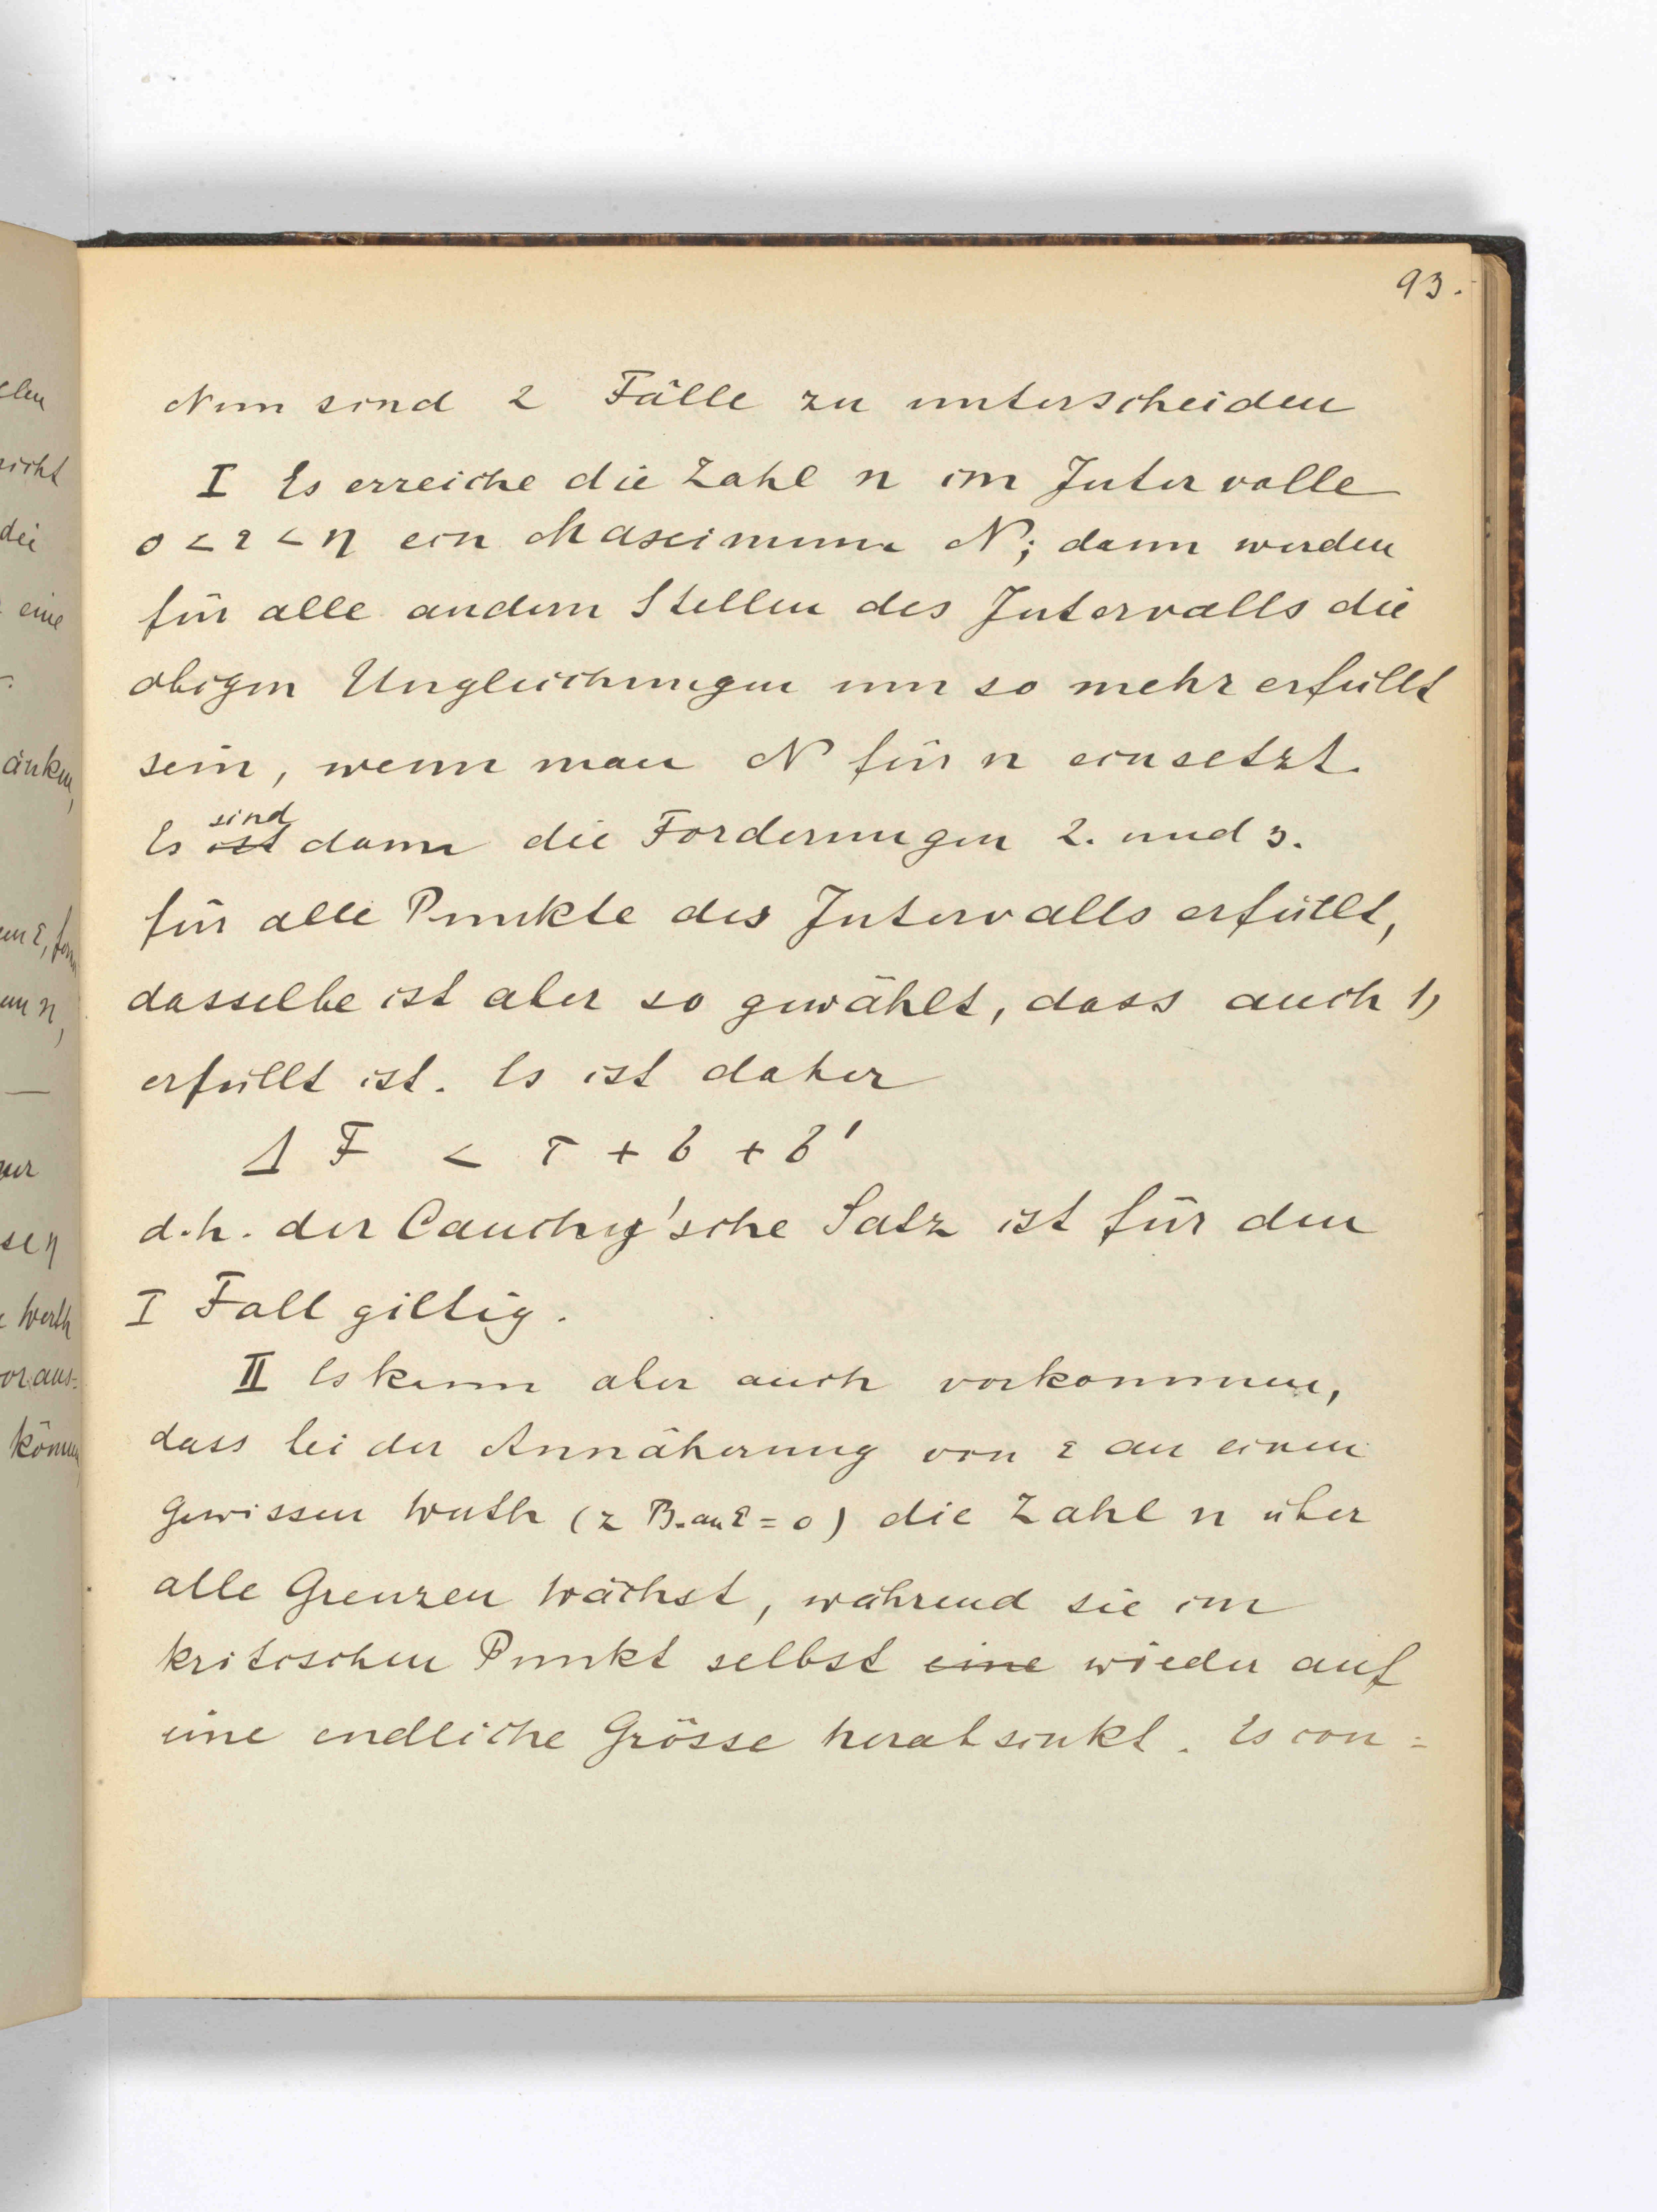 93.
Nun sind 2 Fälle zu unterscheiden
I Es erreiche die Zahl n im Intervalle
0 < ε < η ein Maximum N; dann werden
für alle andern Stellen des Intervalls die
obigen Ungleichungen um so mehr erfüllt
sein, wenn man N für n einsetzt.
sind
Es ist dann die Forderungen 2. und 3.
für alle Punkte des Intervalls erfüllt,
dasselbe ist aber so gewählt, dass auch 1)
erfüllt ist. Es ist daher
Δ F < τ + δ + δ'
d.h. der Cauchy'sche Satz ist für den
I Fall giltig.
II Es kann aber auch vorkommen,
dass bei der Annäherung von ε an einen
gewissen Werth (z B. an ε = 0) die Zahl n über
alle Grenzen wächst, während sie im
kritischen Punkt selbst eine wieder auf
eine endliche Grösse herabsinkt. Es con=